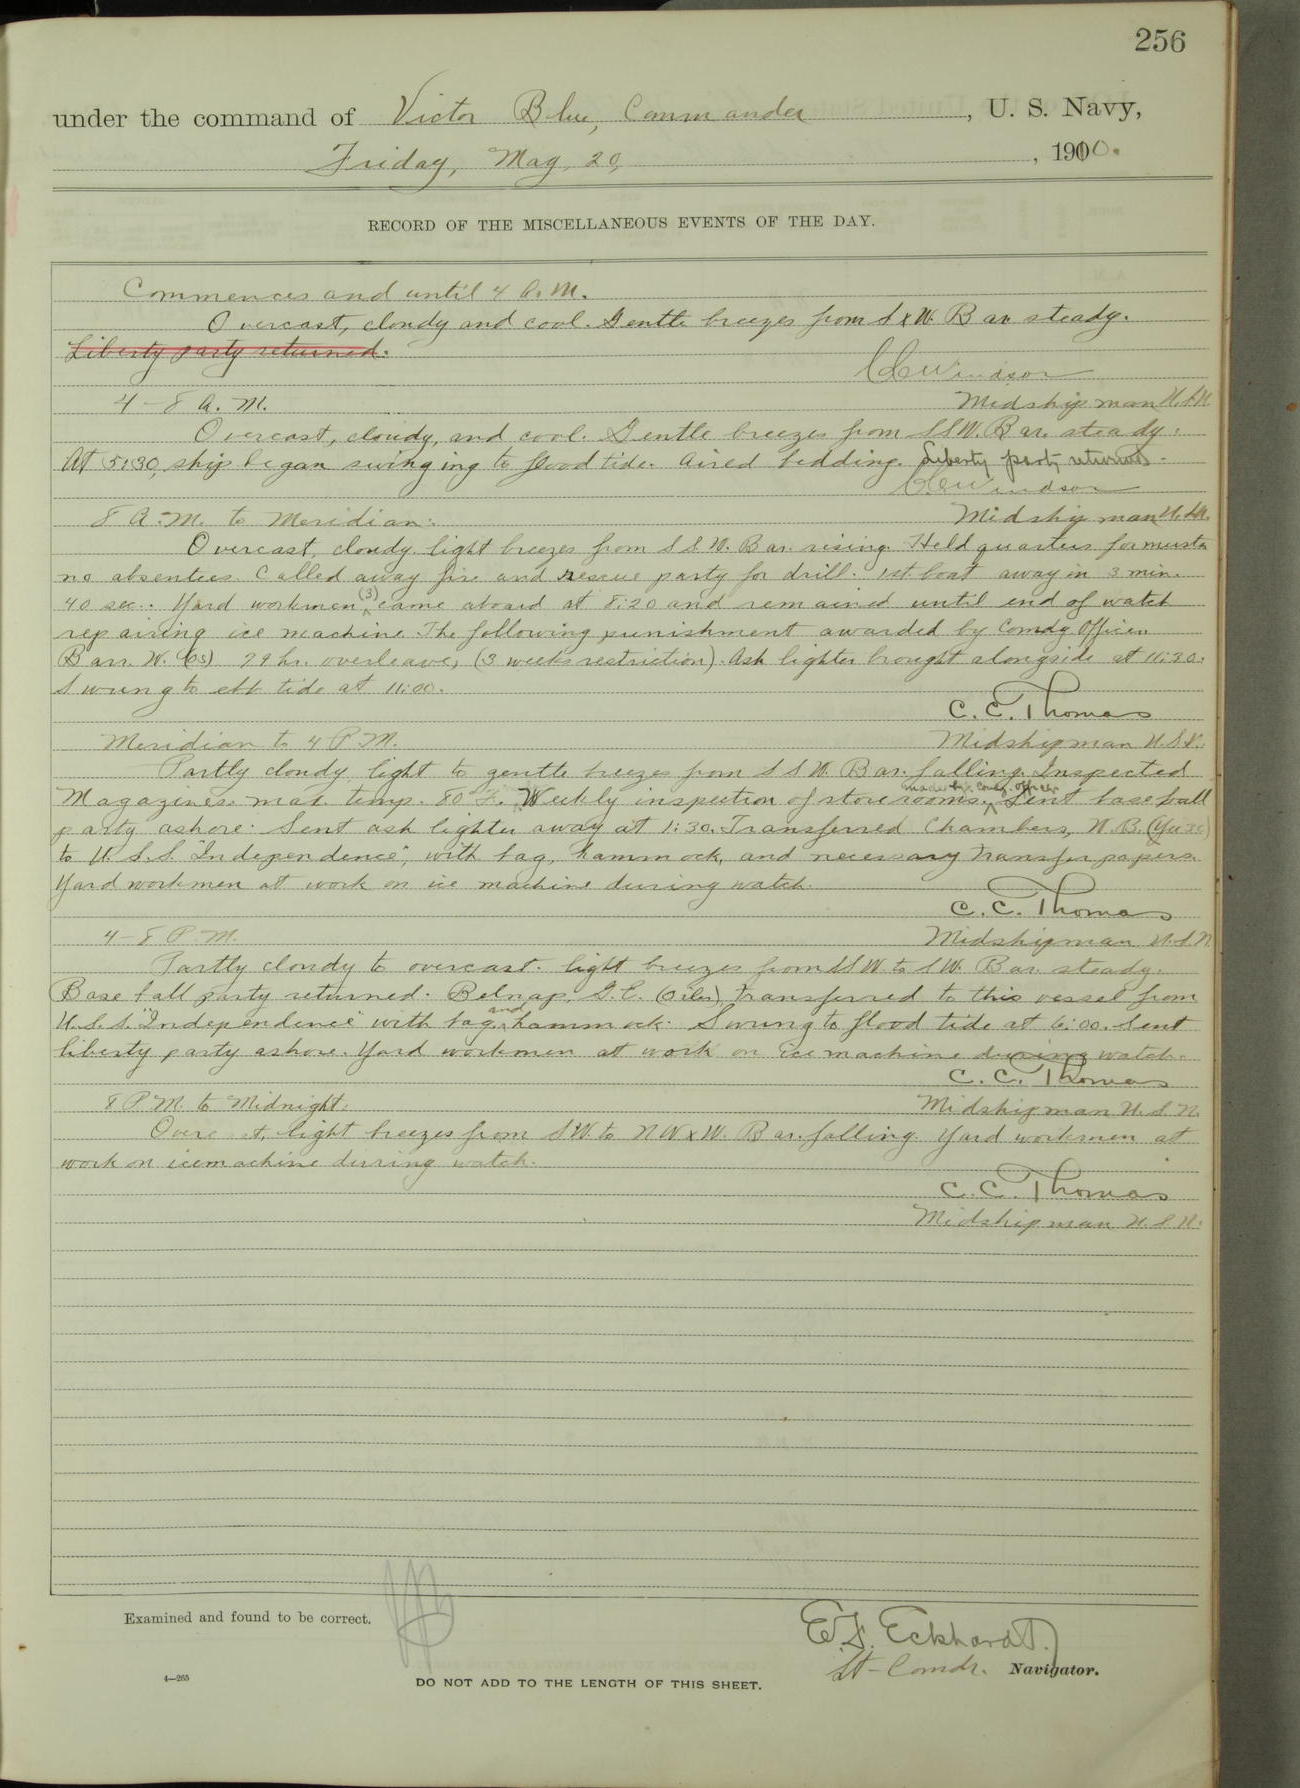 256
under the command of Victor Blue, Commander, U. S. Navy,
Friday, May 20, 1910.
RECORD OF THE MISCELLANEOUS EVENTS OF THE DAY.
Commences and until 4 A.M.
Overcast, cloudy and cool. Gentle breezes from SxW. Bar steady.
Liberty party returned.
Windsor
4-8 A.M. Midshipman U.S.N.
Overcast, cloudy, and cool. Gentle breezes from SSW. Bar. steady.
At 5:30, ship began swinging to flood tide. Aired bedding. Liberty party returned.
Windsor
8 A.M. to Meridian: Midshipman U.S.N.
Overcast, cloudy light breezes from SSW. Bar. rising. Held quarters for muster
no absentees. Called away fire and rescue party for drill. 1st boat away in 3 min.
40 sec. Yard workmen (3) came aboard at 8:20 and remained until end of watch
repairing ice machine. The following punishment awarded by Comdg Officer.
Barr. W. 29 hr. overleave, (3 weeks restriction). Ash lighter brought alongside at 11:30.
Swung to ebb tide at 11:00.
C. C. Thomas
Meridian to 4 P.M. Midshipman U.S.N.
Partly cloudy light to gentle breezes from SSW. Bar. falling. Inspected
Magazines. max. temp. 80° F. Weekly inspection of storerooms made by Comdg. Officer. Sent base ball
party ashore. Sent ash lighter away at 1:30. Transferred Chambers, N.B.
to U.S.S. "Independence", with bag, hammock, and necessary transfer papers.
Yard workmen at work on ice machine during watch.
C. C. Thomas
4-8 P.M. Midshipman U.S.N.
Partly cloudy to overcast. light breezes from SSW to SW. Bar steady.
Base ball party returned. Belnap, G.C. (Oiler) transferred to this vessel from
U.S.S. "Independence" with bag and hammock. Swung to flood tide at 6:00. Sent
liberty party ashore. Yard workmen at work on ice machine during watch.
C. C. Thomas
8 P.M. to Midnight: Midshipman U.S.N.
light breezes from SW. to NWxW. Bar. falling. Yard workmen at
work on ice machine during watch.
C. C. Thomas
Midshipman U.S.N.
Examined and found to be correct.
E. F. Eckhardt.
Lt-Comdr. Navigator.
4—265
DO NOT ADD TO THE LENGTH OF THIS SHEET.